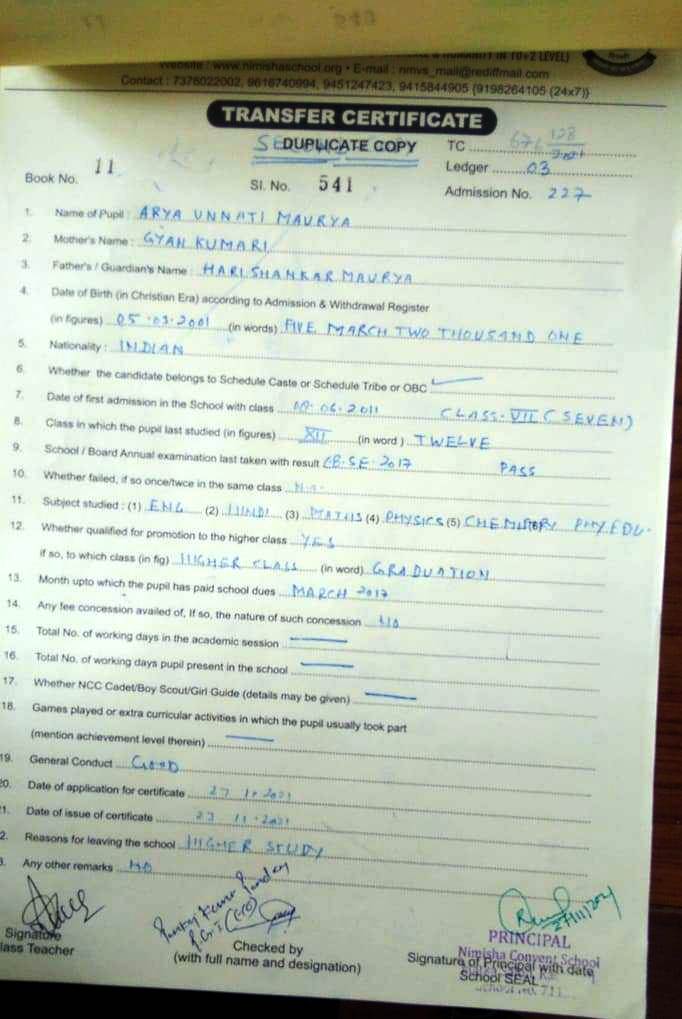 & HUMANITY IN 10+2 LEVEL)
Website : www.nimishaschool.org • E-mail : nmvs_mail@rediffmail.com
Contact : 7376022002, 9616740994, 9451247423, 9415844905 (9198264105 (24x7))
TRANSFER CERTIFICATE
DUPLICATE COPY TC
Book No. 11 Sl. No. 541 Ledger 03
Admission No. 227
1. Name of Pupil : ARYA UNNATI MAURYA
2. Mother's Name : GYAN KUMARI
3. Father's / Guardian's Name : HARI SHANKAR MAURYA
4. Date of Birth (in Christian Era) according to Admission & Withdrawal Register
(in figures) 05.03.2001 (in words) FIVE MARCH TWO THOUSAND ONE
5. Nationality : INDIAN
6. Whether the candidate belongs to Schedule Caste or Schedule Tribe or OBC
7. Date of first admission in the School with class 06.2011 CLASS-VII (SEVEN)
8. Class in which the pupil last studied (in figures) XII (in word) TWELVE
9. School / Board Annual examination last taken with result CBSE-2017 PASS
10. Whether failed, if so once/twce in the same class N.A.
11. Subject studied : (1) ENG (2) HINDI (3) MATHS (4) PHYSICS (5) CHEMISTRY PHY.EDU.
12. Whether qualified for promotion to the higher class YES
if so, to which class (in fig) HIGHER CLASS (in word) GRADUATION
13. Month upto which the pupil has paid school dues MARCH 2017
14. Any fee concession availed of, If so, the nature of such concession NO
15. Total No. of working days in the academic session
16. Total No. of working days pupil present in the school
17. Whether NCC Cadet/Boy Scout/Girl Guide (details may be given)
18. Games played or extra curricular activities in which the pupil usually took part
(mention achievement level therein)
19. General Conduct GOOD
20. Date of application for certificate 27 11.2021
21. Date of issue of certificate 27 11.2021
2. Reasons for leaving the school HIGHER STUDY
3. Any other remarks NO
Pankaj Kumar Pandey
27/11/2021
PRINCIPAL
Nimisha Convent School
Signature
lass Teacher
Checked by
(with full name and designation)
Signature of Principal with date
School SEAL
School No. 711